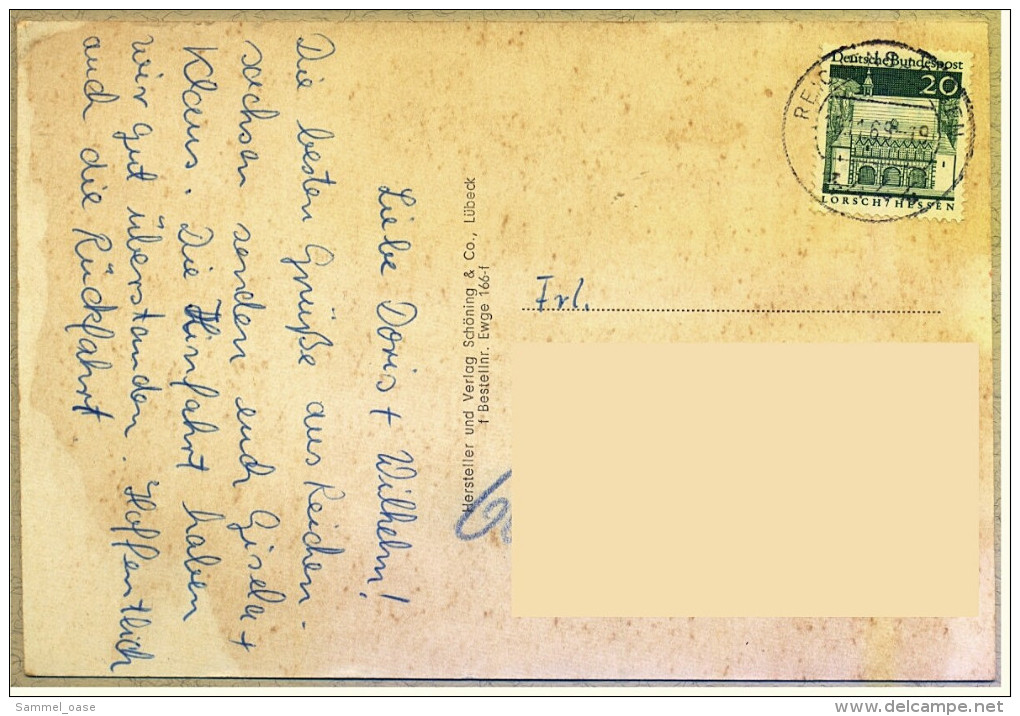 Liebe Doris + Wilhelm!
Die besten Grüße aus Reichen-
sachsen senden euch Gisela +
Klaus. Die Hinfahrt haben
wir gut überstanden. Hoffentlich
auch die Rückfahrt
Hersteller und Verlag Schöning & Co., Lübeck
f Bestellnr. Ewge 166-f
Deutsche Bundespost
20
LORSCH/HESSEN
Frl.
Sammel_oase
www.delcampe.net